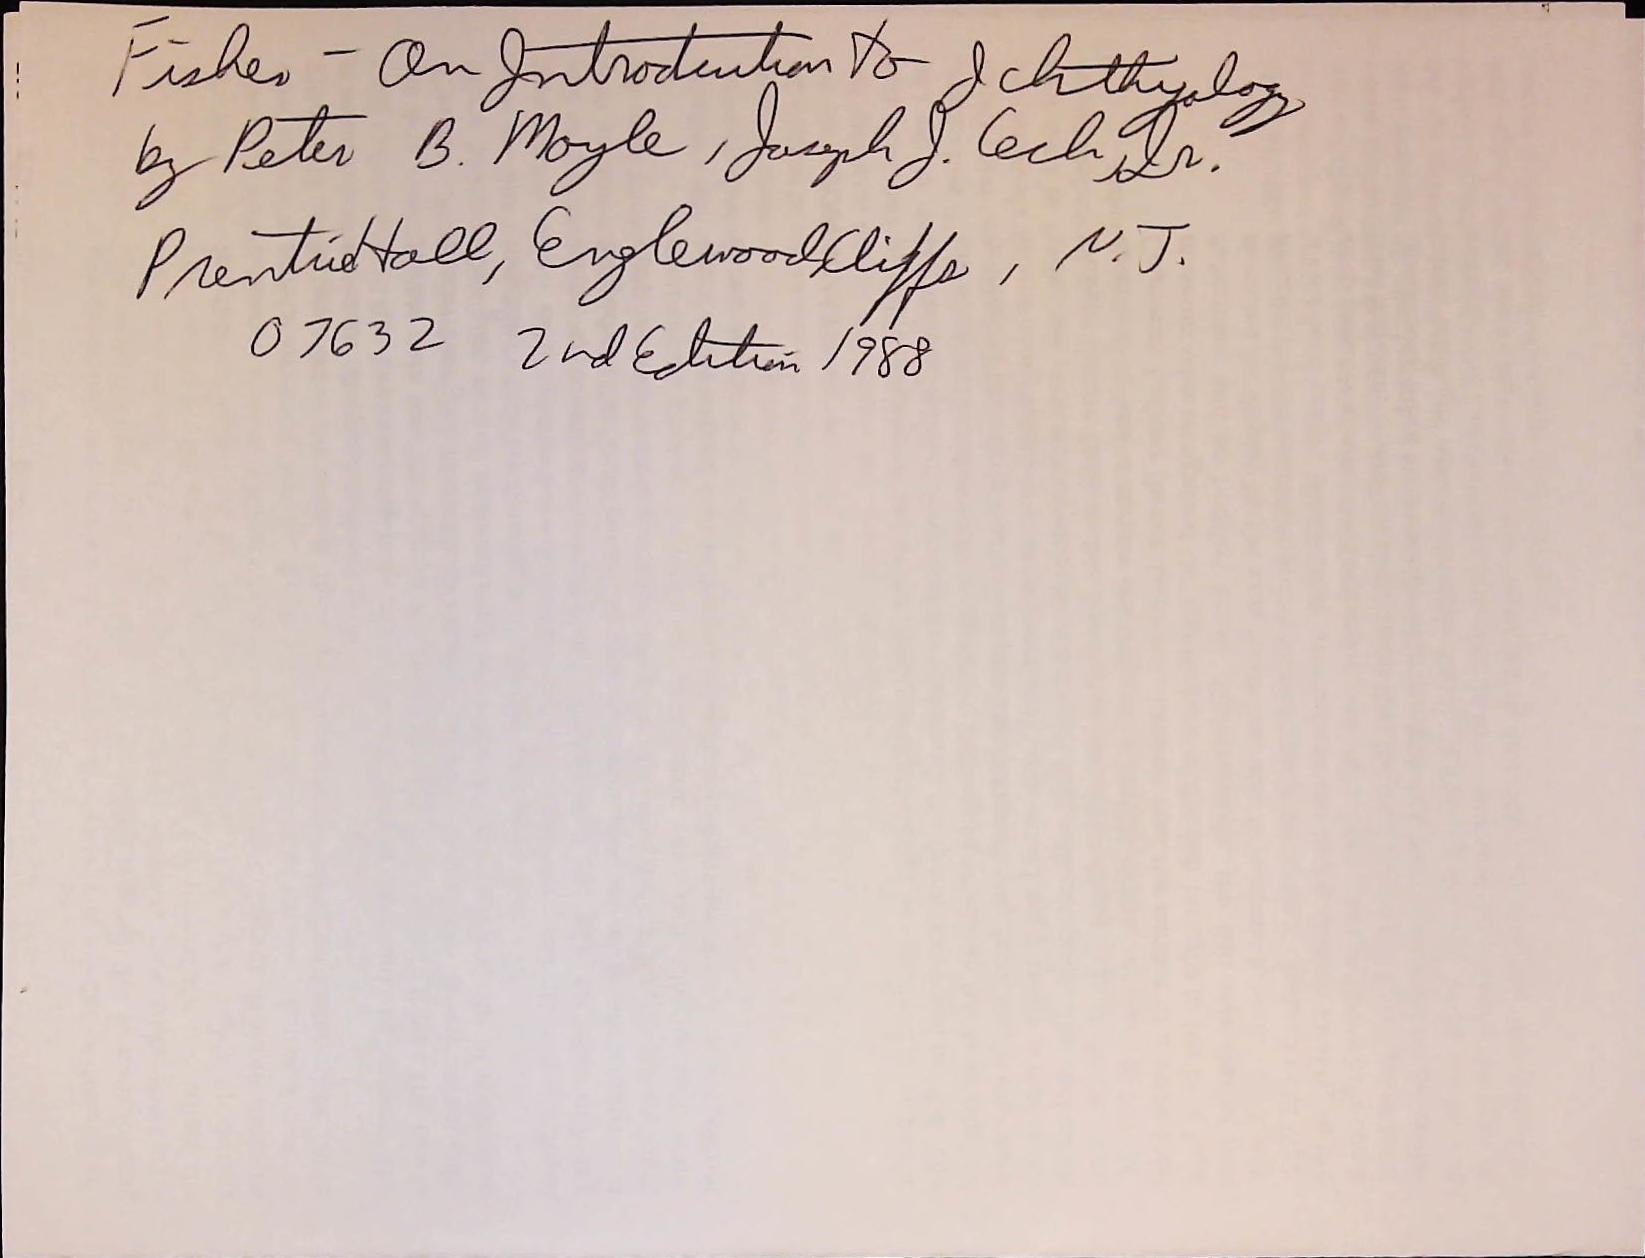 Fishes - An Introduction to Ichthyology
by Peter B. Moyle, Joseph J. Cech, Jr.
Prentice Hall, Englewood Cliffs, N.J.
07632 2nd Edition 1988